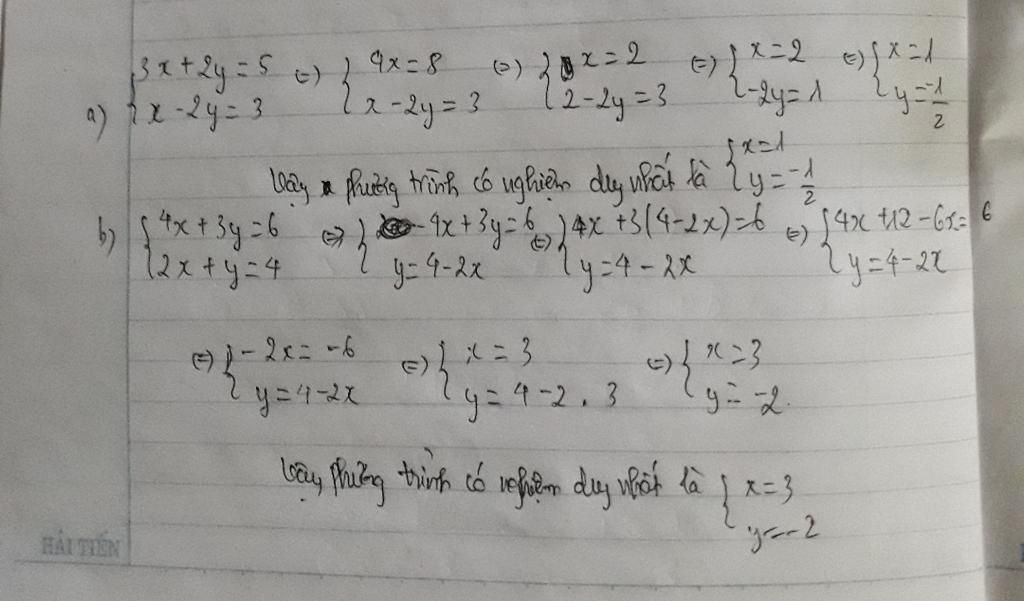 a) {3x+2y=5 / x-2y=3 (=) {4x=8 / x-2y=3 (=) {x=2 / 2-2y=3 (=) {x=2 / -2y=1 (=) {x=1 / y=-1/2
Vậy phương trình có nghiệm duy nhất là {x=1 / y=-1/2
b) {4x+3y=6 / 2x+y=4 (=) {4x+3y=6 / y=4-2x (=) {4x+3(4-2x)=6 / y=4-2x (=) {4x+12-6x=6 / y=4-2x
(=) {-2x=-6 / y=4-2x (=) {x=3 / y=4-2.3 (=) {x=3 / y=-2.
Vậy phương trình có nghiệm duy nhất là {x=3 / y=-2
HẢI TIẾN